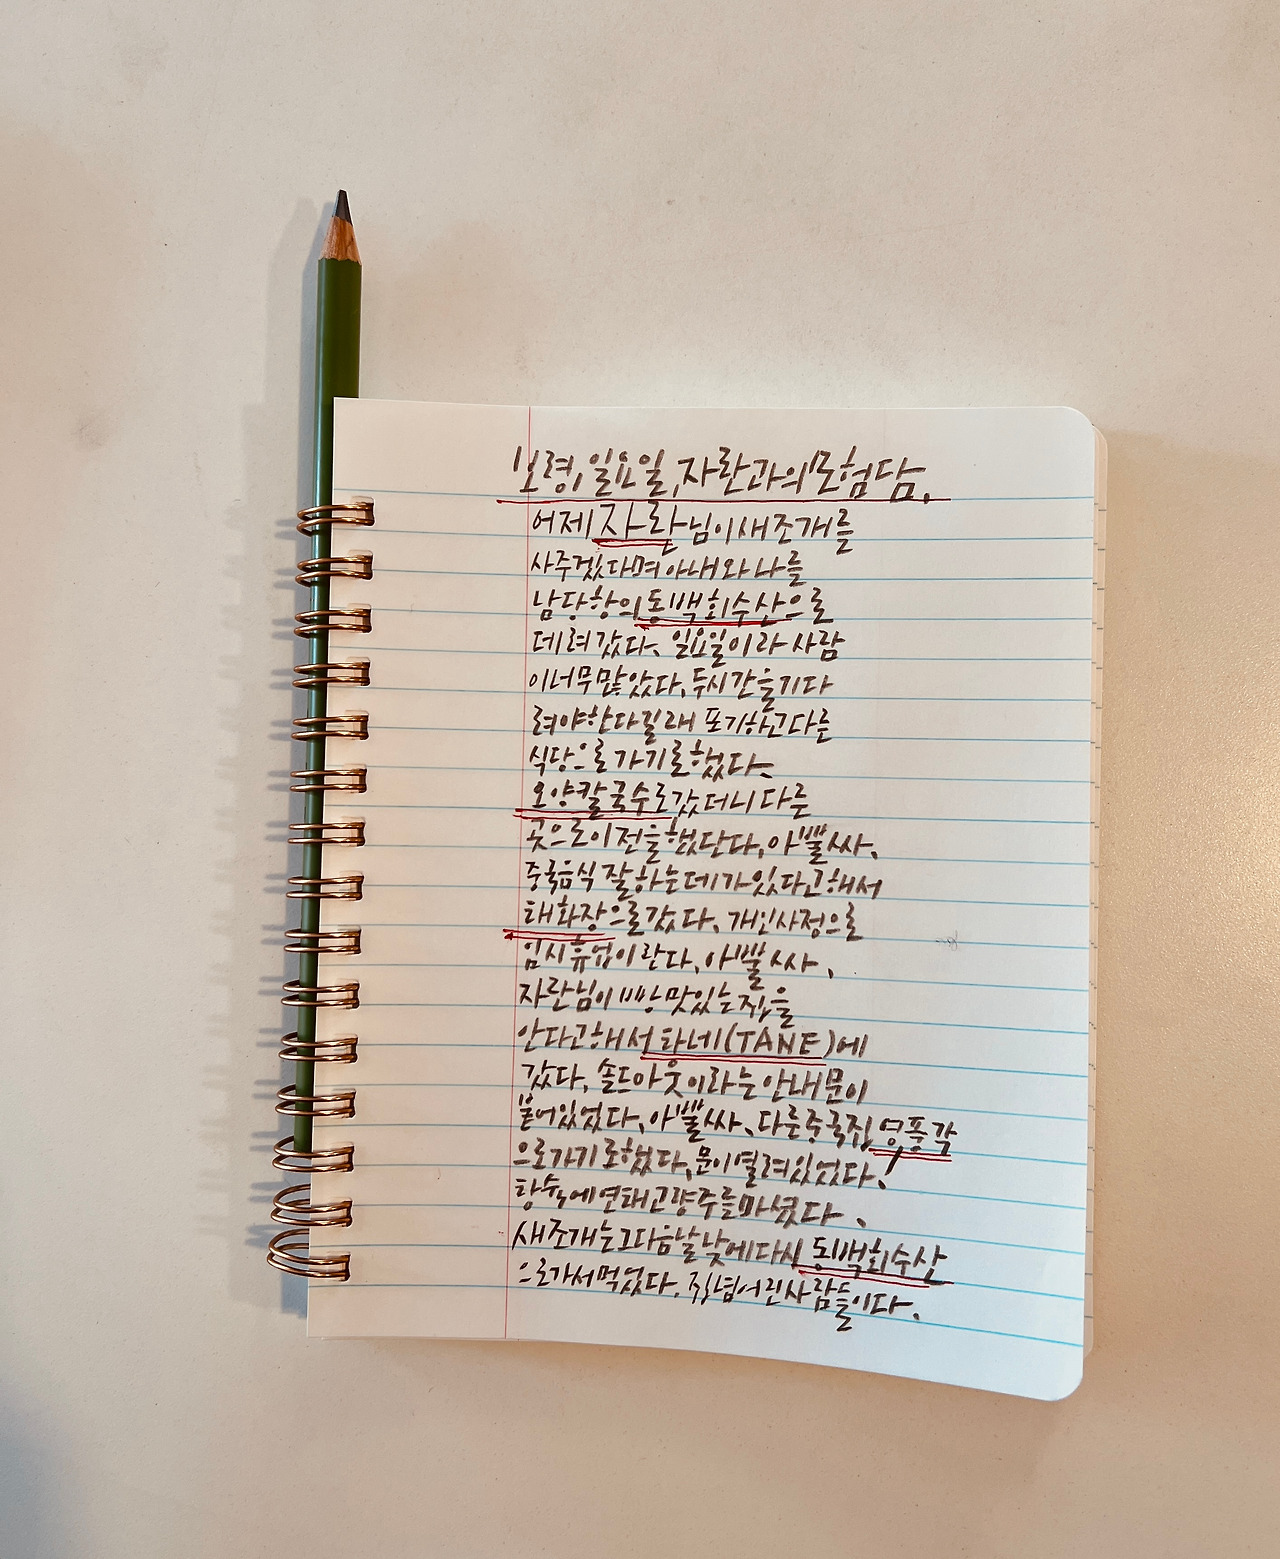 보령, 일요일, 자란과의 모험담.
어제 자란님이 새조개를
사주겠다며 아내와 나를
남당항의 동백회수산으로
데려갔다. 일요일이라 사람
이 너무 많았다. 두시간을 기다
려야 한다길래 포기하고 다른
식당으로 가기로 했다.
오양칼국수로 갔더니 다른
곳으로 이전을 했단다. 아뿔싸.
중국음식 잘하는데가 있다고 해서
태화장으로 갔다. 개인사정으로
임시휴업이란다. 아뿔싸.
자란님이 빵 맛있는 집을
안다고 해서 타네(TANE)에
갔다. 솔드아웃이라는 안내문이
붙어있었다. 아뿔싸. 다른 중국집 영풍각
으로 가기로 했다. 문이 열려있었다!
탕수육에 연태고량주를 마셨다.
새조개는 그 다음날 낮에 다시 동백회수산
으로 가서 먹었다. 집념어린 사람들이다.